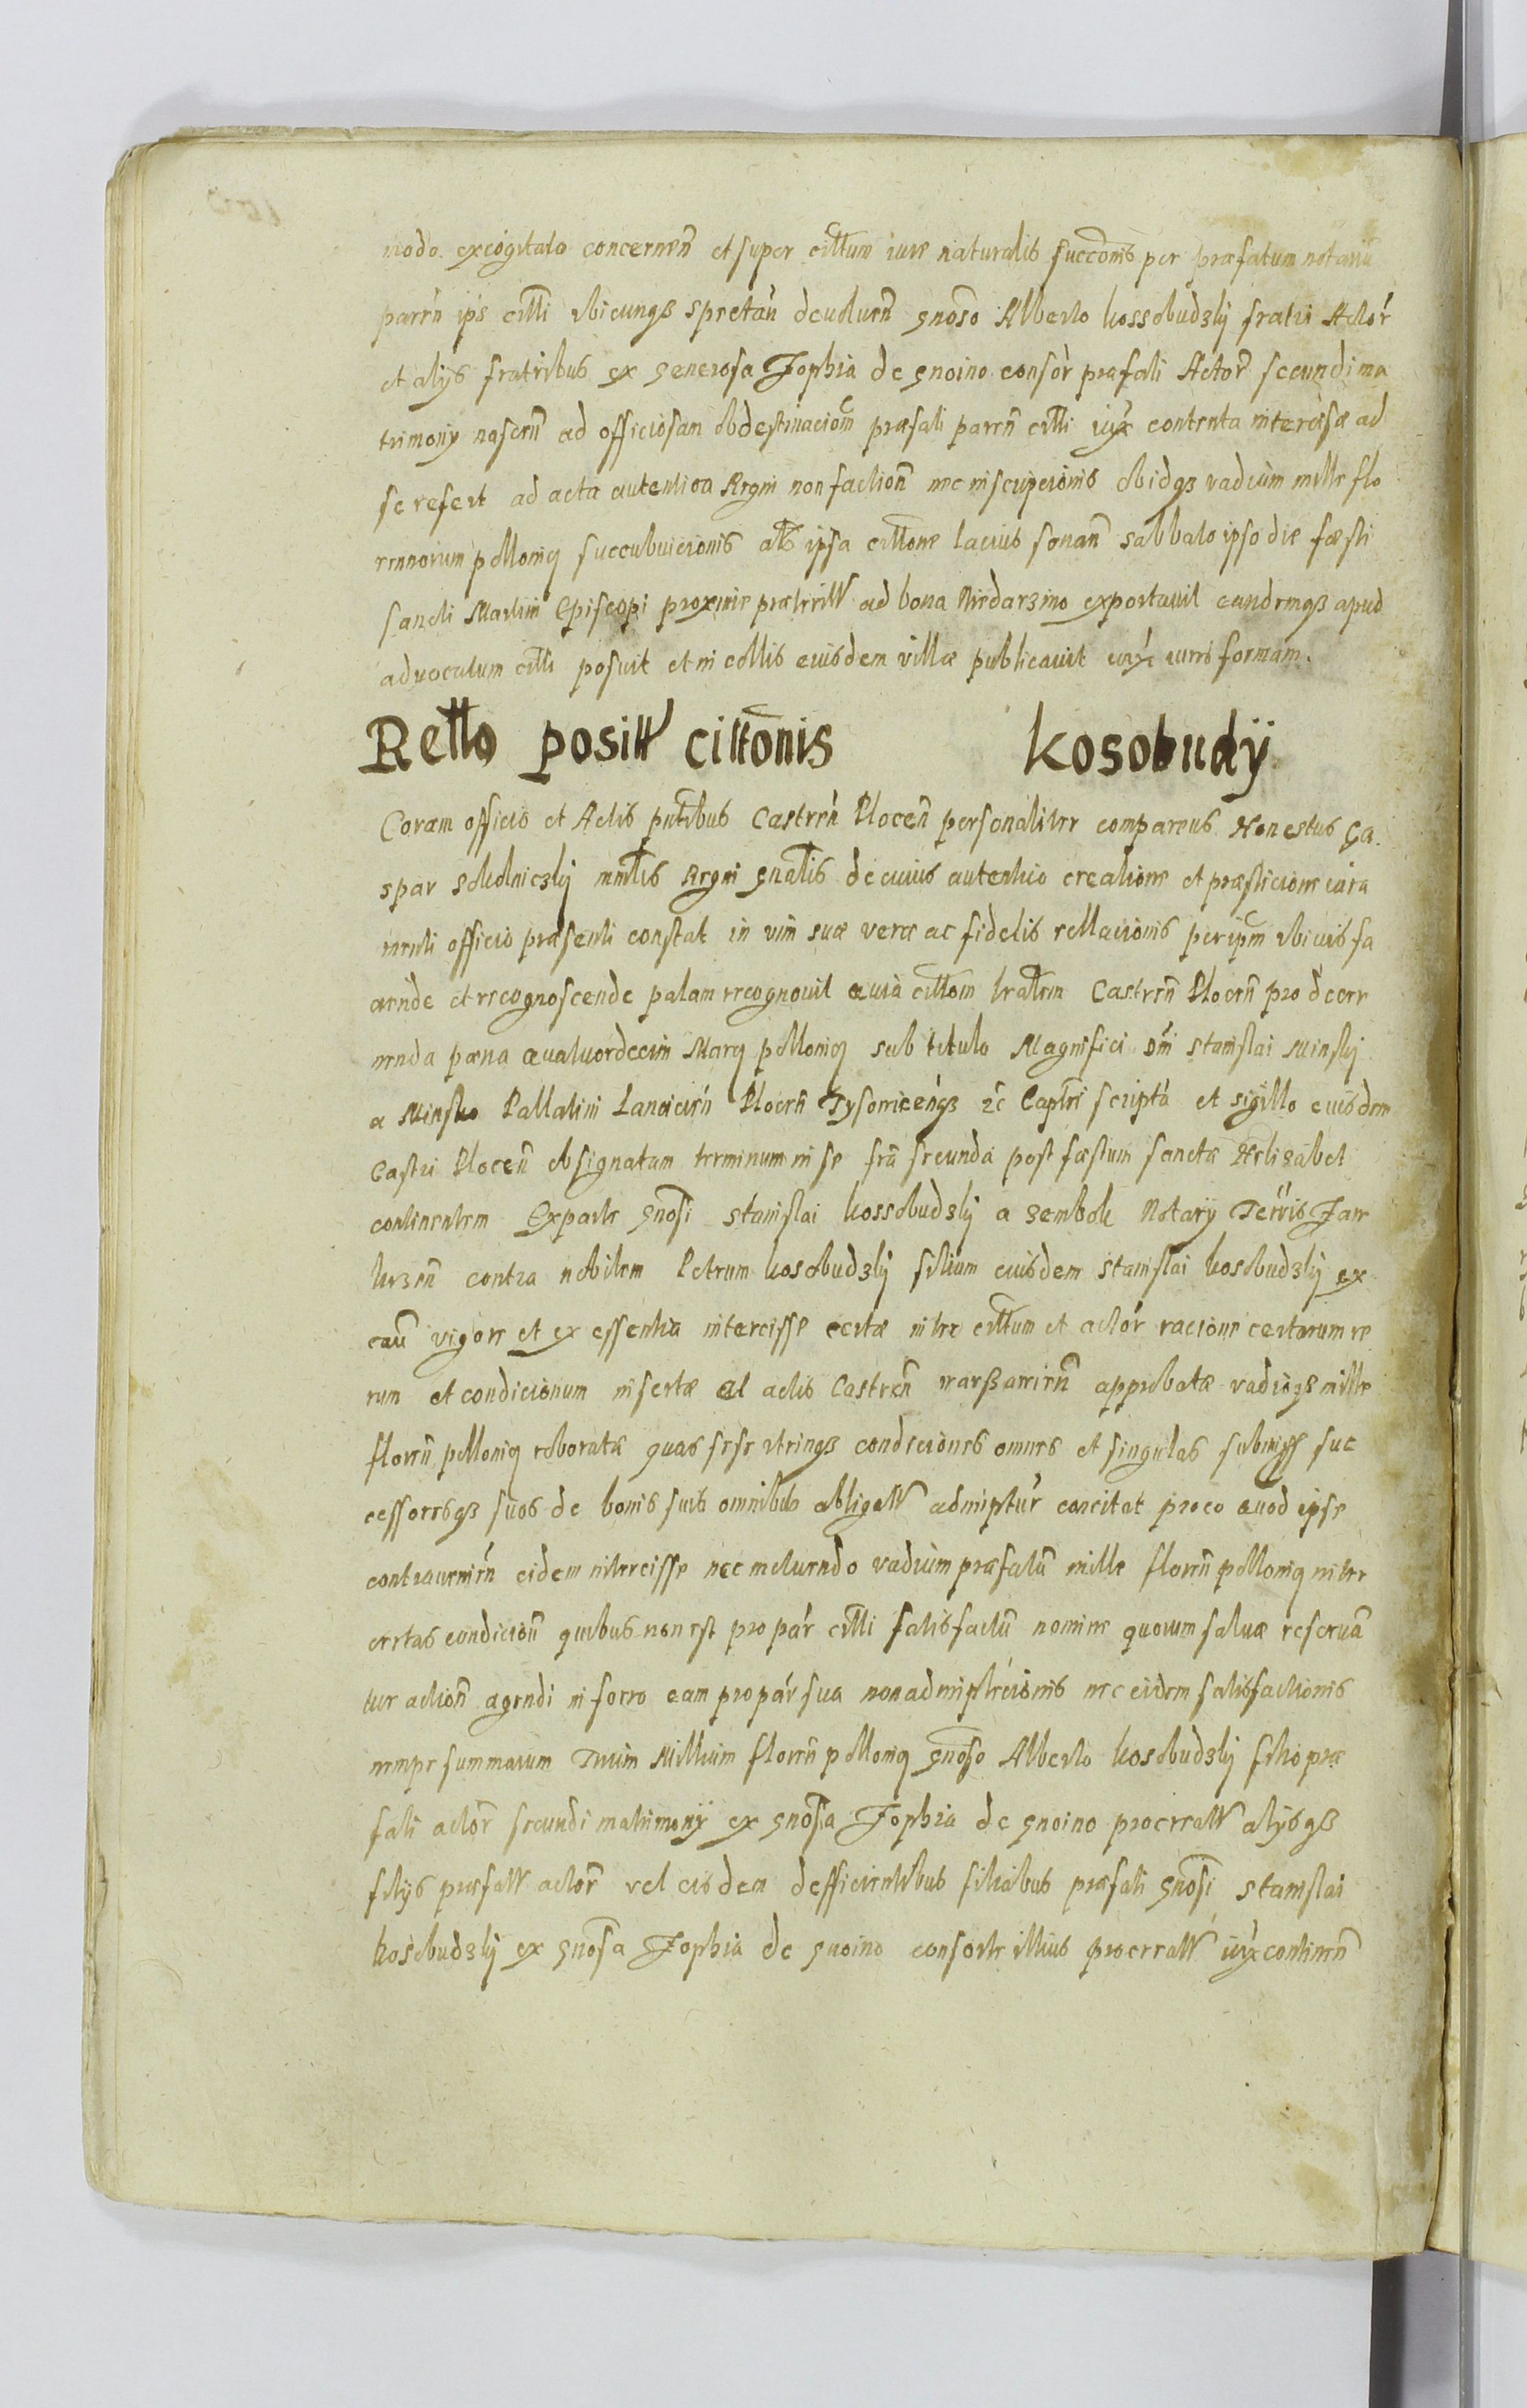 modo excogitato concernen̄ et super cittum iure naturalis succōnis per præfatum notariū
paren̄ ips citti vbicunqȝ spretan̄ deuoluen̄ gnoso Alberto kossobudzkÿ fratri Actor̄
et alÿs fratribus ex generosa Zophia de gnoino consor̄ præfati Actor̄ secundi ma
trimonÿ nascen̄ ad officiosam obdestinacioem præfati paren̄ citti iux̄ contenta intercisæ ad
se refert ad acta autentica Regni non faction̄ nec inscripcionis obidqȝ vadium mille flo
rennorum pollonicq succubuicionis alr̄ ipsa cittone lacius sonan̄ sabbato ipso die fæsti
sancti Martini Episcopi proxime præteritt ad bona Niedarzino exportauit eandemqȝ apud
aduocatum citti posuit et in collis eiusdem villæ publicauit iux̄ iuris formam.
Retto positt cittōnis kosobudÿ
Coram officio et Actis pntibus Castren̄ Plocen̄ personaliter comparens Honestus Ga
spar sokolniczkÿ mnltis Regni gnatis de cuius autentico creatione et præsticione iura
menti officio præsenti constat in vim suæ veræ ac fidelis rellacionis per ipm vbiuis fa
ciende et recognoscende palam recognouit quia cittom tratem Castren̄ Plocen̄ pro decer
nenda pæna quatuordecim Marcq pollonicq sub titulo Magnifici Dm̄ stanislai Minskÿ
a Minsko Pallatini Lancicien̄ Plocen̄ Gysomicen̄qȝ zc̄ Captni scripta et sigillo eiusdem
Castri Plocen̄ obsignatam terminum in se fra secunda post fæstum sanctæ Helizabet
continentem Exparte gnosi stanislai kossobudzkÿ a zembok Notarÿ Terris Zaw
krzen̄ contra nobilem Petrum kosobudzkÿ filium eiusdem stanislai kosobudzkÿ ex
eaū vigore et ex essentia intercisse certæ inter cittum et actor̄ racione certarum re
rum et condicionum insertæ et actis Castren̄ warßauien̄ approbatæ vadioqȝ mille
floren̄ pollonicq roboratæ quas sese vtrinqȝ condiciones omnes et singulas submiss̄ suc
cessoresqȝ suos de bonis suis omnibus obligatt adimptur̄ concitat pro eo quod ipse
contraueniēn̄ eidem intercisse nec metuendo vadium præfatū mille floren̄ pollonicq inter
certas condicion̄ quibus non est pro par̄ citti satisfactū nomine quorum saluæ reserua
tur action̄ agendi in forro eam pro par̄ sua non adimplecionis nec eidem satisfactionis
nempe summarum Trium Millium floren̄ pollonicq gnoso Alberto kosobudzkÿ filio præ
fati actor̄ secundi matrimonÿ ex gnosa Zophia de gnoino procreatt alÿsqȝ
filÿs præfatt actor̄ vel eisdem defficientibus filiabus præfati gnosi stanislai
kosobudzkÿ ex gnosa Zophia de gnoino consorte illius procreatt iux̄ continen̄